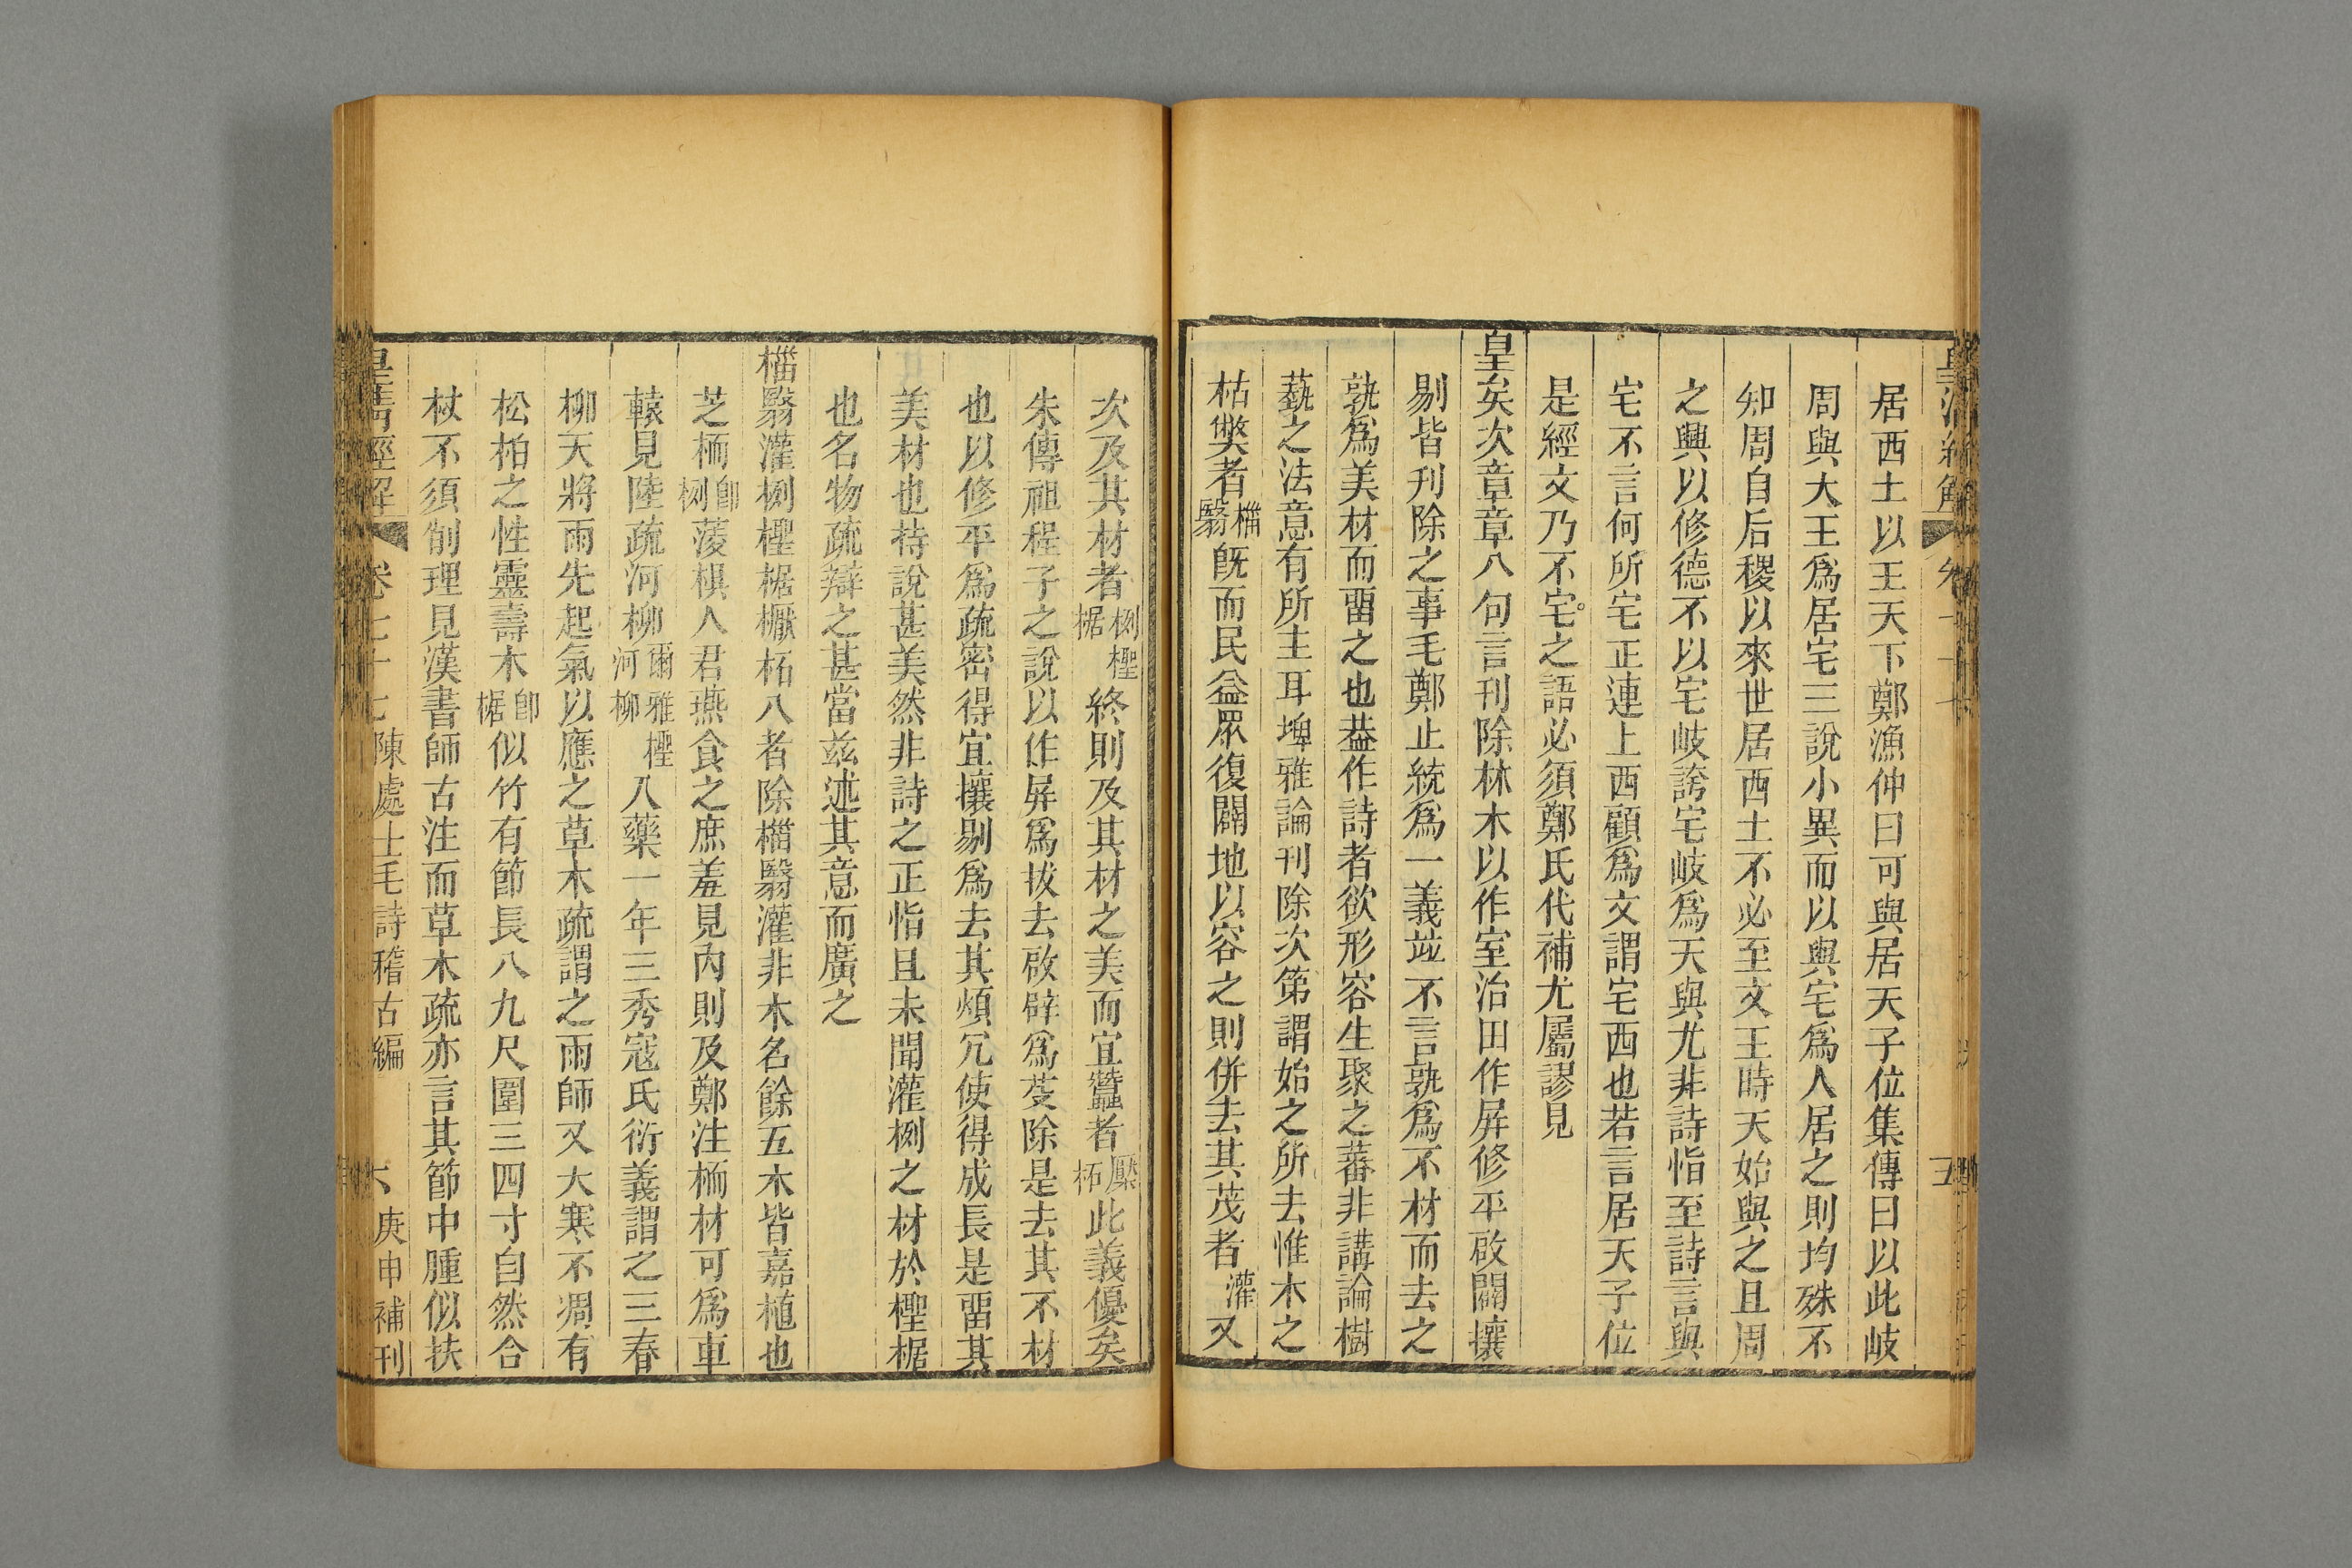 居西土以王天下鄭漁仲曰可與居天子位集傳曰以此岐
周與大王爲居宅三說小異而以與宅爲人居之則均殊不
知周自后稷以來世居西土不必至文王時天始與之且周
之興以修德不以宅岐誇宅岐爲天與尤非詩恉至詩言與
宅不言何所宅正連上西顧爲文謂宅西也若言居天子位
是經文乃不宅之語必須鄭氏代補尤屬謬見
皇矣次章章八句言刊除林木以作室治田作屏修平啟闢攘
剔皆刊除之事毛鄭止統爲一義竝不言孰爲不材而去之
孰爲美材而畱之也葢作詩者欲形容生聚之蕃非講論樹
蓺之法意有所主耳埤雅論刊除次第謂始之所去惟木之
枯獘者檣翳旣而民益眾復闢地以容之則併去其茂者灌又
次及其材者栵檉椐終則及其材之美而宜蠶者檿柘此義優矣
朱傳祖程子之說以作屏爲拔去啟辟爲芟除是去其不材
也以修平爲疏密得宜攘剔爲去其煩冗使得成長是畱其
美材也持說甚美然非詩之正恉且未聞灌栵之材於檉椐
也名物疏辯之甚當兹述其意而廣之
椔翳灌栵檉椐檿柘八者除椔翳灌非木名餘五木皆嘉植也
芝栭卽栵蔆椇人君燕食之庶羞見內則及鄭注栭材可爲車
轅見陸疏河柳爾雅檉河柳八藥一年三秀寇氏衍義謂之三春
柳天將雨先起氣以應之草木疏謂之雨師又大寒不凋有
松柏之性靈壽木卽椐似竹有節長八九尺圍三四寸自然合
杖不須制理見漢書師古注而草木疏亦言其節中腫似扶
皇清經解 卷七十七 陳處士毛詩稽古編 六 庚申補刊